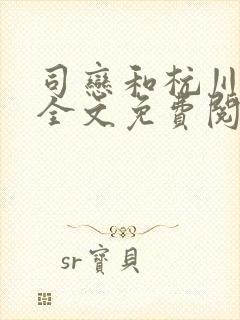 司戀和杭川
全文免費閱
sr寶貝